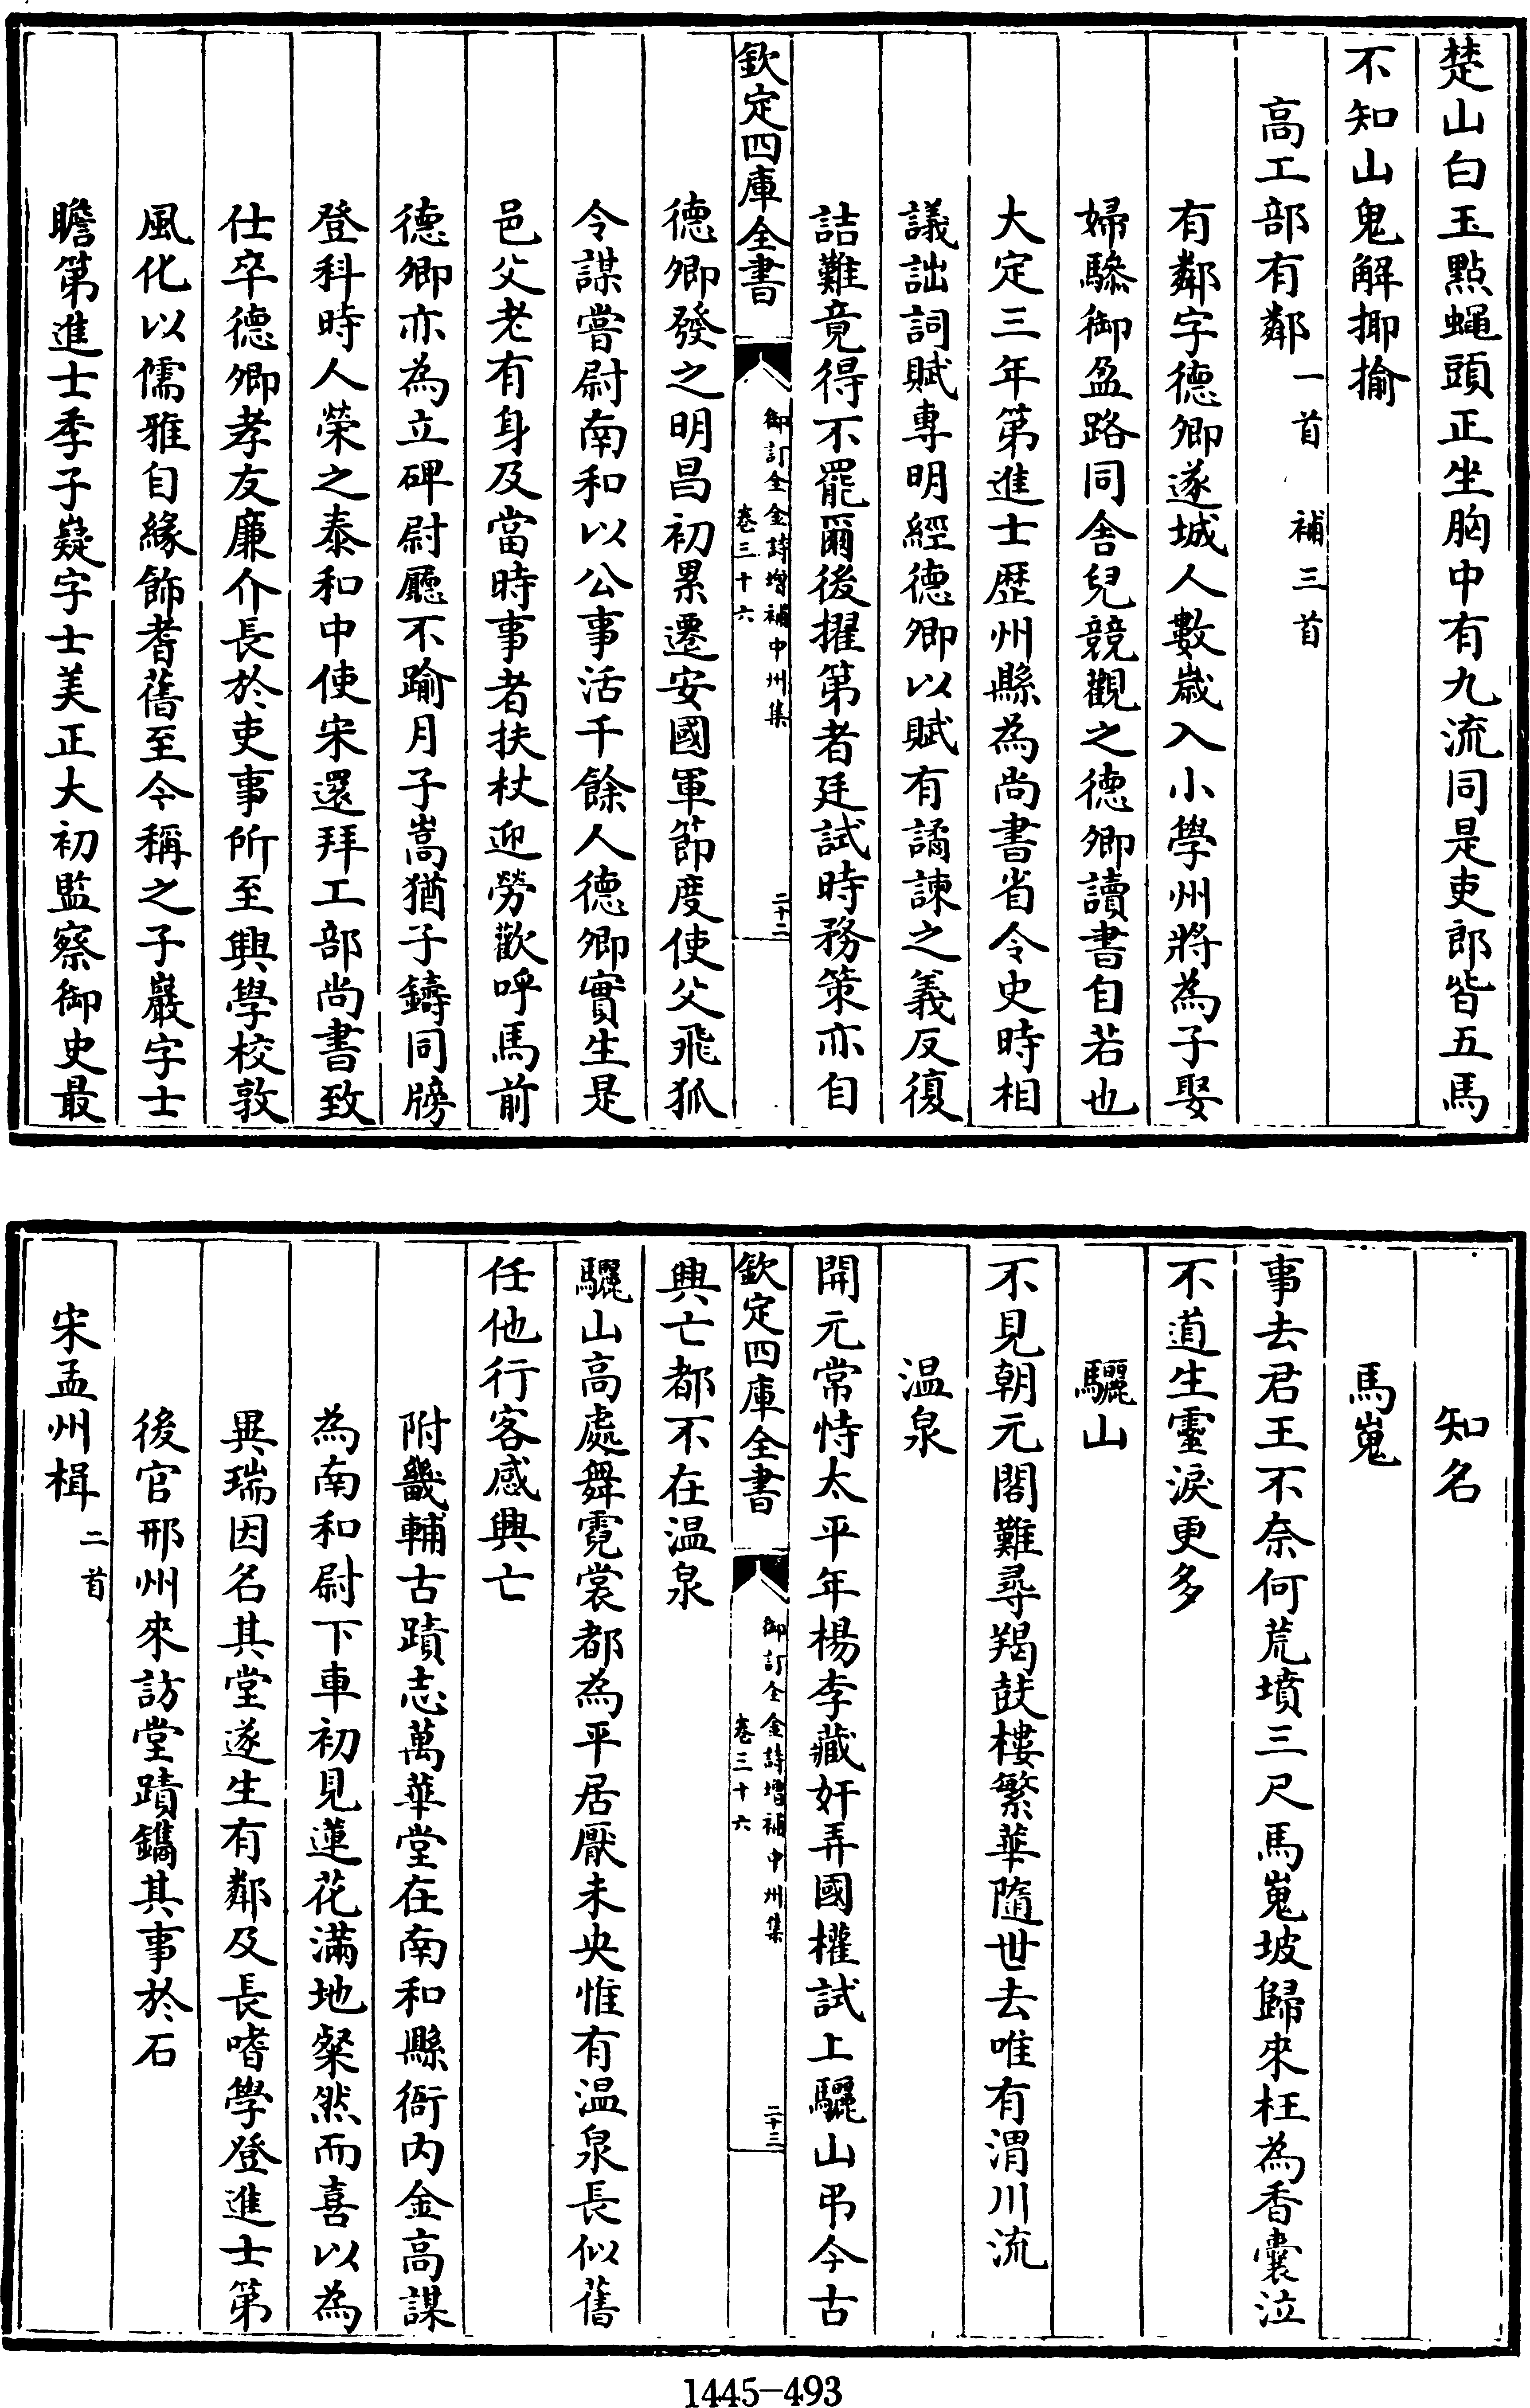 楚山白玉點蠅頭正坐胸中有九流同是吏郎皆五馬
不知山鬼解揶揄
高工部有鄰一首 補三首
有鄰字德卿遂城人數歲入小學州將為子娶
婦驂御盈路同舍兒競觀之德卿讀書自若也
大定三年第進士歴州縣為尚書省令史時相
議詘詞賦專明經德卿以賦有譎諫之義反復
詰難竟得不罷爾後擢第者廷試時務策亦自
欽定四庫全書
御訂全金詩增補中州集
卷三十六
二十二
德卿發之明昌初累遷安國軍節度使父飛狐
令謀嘗尉南和以公事活千餘人德卿實生是
邑父老有身及當時事者扶杖迎勞歡呼馬前
德卿亦為立碑尉廳不踰月子嵩猶子鑄同牓
登科時人榮之泰和中使宋還拜工部尚書致
仕卒德卿孝友廉介長於吏事所至興學校敦
風化以儒雅自緣飾耆舊至今稱之子巖字士
瞻第進士季子嶷字士美正大初監察御史最
知名
馬嵬
事去君王不奈何荒墳三尺馬嵬坡歸來枉為香囊泣
不道生靈淚更多
驪山
不見朝元閣難尋羯鼓樓繁華隨世去唯有渭川流
温泉
開元常恃太平年楊李藏奸弄國權試上驪山弔今古
欽定四庫全書
御訂全金詩增補中州集
卷三十六
二十三
興亡都不在温泉
驪山高處舞霓裳都為平居厭未央惟有温泉長似舊
任他行客感興亡
附畿輔古蹟志萬華堂在南和縣衙内金高謀
為南和尉下車初見蓮花滿地粲然而喜以為
異瑞因名其堂遂生有鄰及長嗜學登進士第
後官邢州來訪堂蹟鐫其事於石
宋孟州楫二首
1445-493